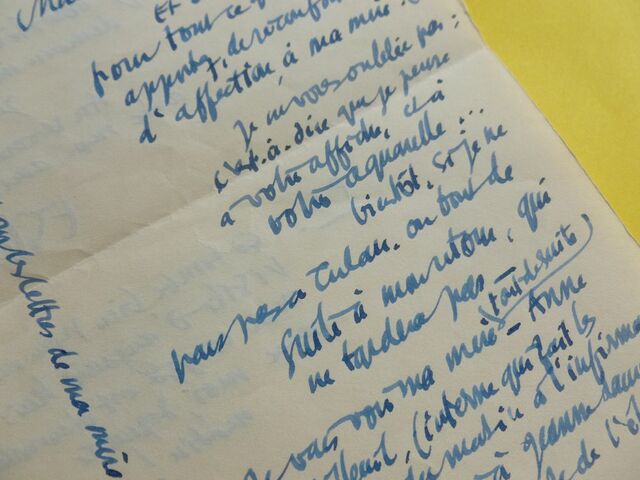 Et
pour tout ce q
apporter, de réconfort
d'affection, à ma mère.
je ne vous oublie pas :
c'est-à-dire que je pense
à votre affiche, et à
votre aquarelle...
bientôt. Si je ne
pars pas à Tulear. ou tout de
suite à mon retour, qui
ne tardera pas -
(tout de suite)
vais voir ma mère - Anne
(interne qui fait les
du matin à l'infirme
à Jeanne
de de l'
les lettres de ma mère